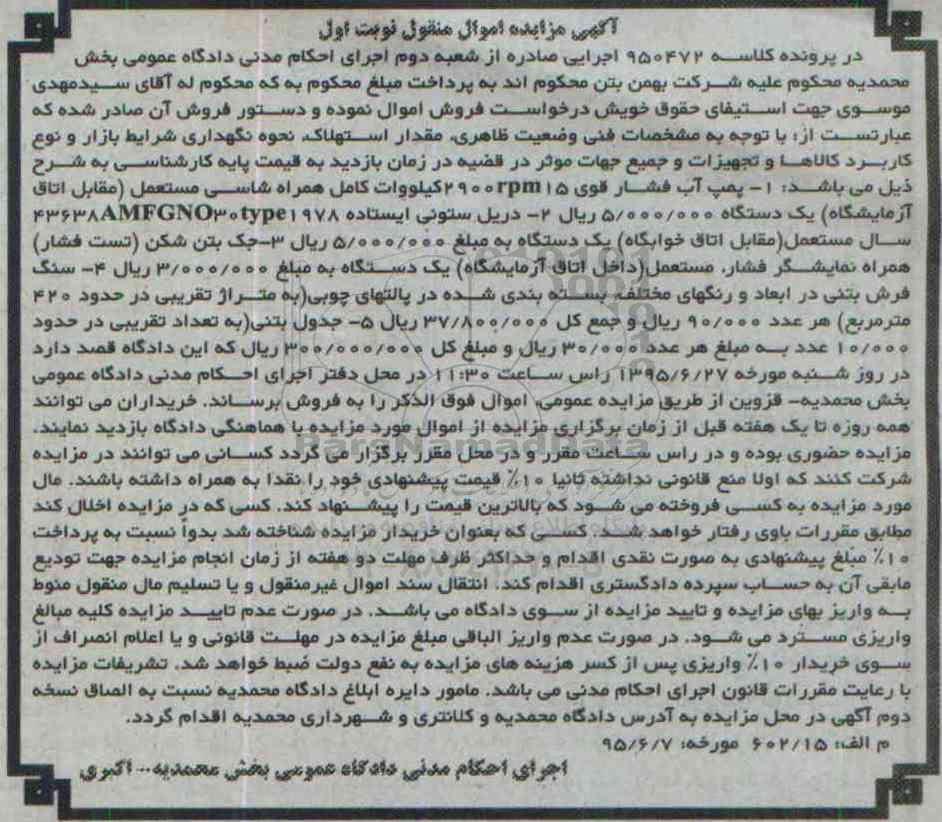 آگهی مزایده اموال منقول نوبت اول
در پرونده کلاسه ۹۵۰۴۷۲ اجرایی صادره از شعبه دوم اجرای احکام مدنی دادگاه عمومی بخش
محمدیه محکوم علیه شرکت بهمن بتن محکوم اند به پرداخت مبلغ محکوم به که محکوم له آقای سیدمهدی
موسوی جهت استیفای حقوق خویش درخواست فروش اموال نموده و دستور فروش آن صادر شده که
عبارتست از: با توجه به مشخصات فنی وضعیت ظاهری، مقدار استهلاک، نحوه نگهداری شرایط بازار و نوع
کاربرد کالاها و تجهیزات و جمیع جهات موثر در قضیه در زمان بازدید به قیمت پایه کارشناسی به شرح
ذیل می باشد: ۱- پمپ آب فشار قوی ۲۹۰۰rpm۱۵کیلووات کامل همراه شاسی مستعمل (مقابل اتاق
آزمایشگاه) یک دستگاه ۵/۰۰۰/۰۰۰ ریال ۲- دریل ستونی ایستاده ۴۳۶۳۸AMFGNO۳۰type۱۹۷۸
سال مستعمل(مقابل اتاق خوابگاه) یک دستگاه به مبلغ ۵/۰۰۰/۰۰۰ ریال ۳-جک بتن شکن (تست فشار)
همراه نمایشگر فشار، مستعمل(داخل اتاق آزمایشگاه) یک دستگاه به مبلغ ۳/۰۰۰/۰۰۰ ریال ۴- سنگ
فرش بتنی در ابعاد و رنگهای مختلف، بسته بندی شده در پالتهای چوبی(به متراژ تقریبی در حدود ۴۲۰
مترمربع) هر عدد ۹۰/۰۰۰ ریال و جمع کل ۳۷/۸۰۰/۰۰۰ ریال ۵- جدول بتنی(به تعداد تقریبی در حدود
۱۰/۰۰۰ عدد به مبلغ هر عدد ۳۰/۰۰۰ ریال و مبلغ کل ۳۰۰/۰۰۰/۰۰۰ ریال که این دادگاه قصد دارد
در روز شنبه مورخه ۱۳۹۵/۶/۲۷ راس ساعت ۱۱:۳۰ در محل دفتر اجرای احکام مدنی دادگاه عمومی
بخش محمدیه- قزوین از طریق مزایده عمومی، اموال فوق الذکر را به فروش برساند. خریداران می توانند
همه روزه تا یک هفته قبل از زمان برگزاری مزایده از اموال مورد مزایده با هماهنگی دادگاه بازدید نمایند.
مزایده حضوری بوده و در راس ساعت مقرر و در محل مقرر برگزار می گردد کسانی می توانند در مزایده
شرکت کنند که اولا منع قانونی نداشته ثانیا ۱۰٪ قیمت پیشنهادی خود را نقدا به همراه داشته باشند. مال
مورد مزایده به کسی فروخته می شود که بالاترین قیمت را پیشنهاد کند. کسی که در مزایده اخلال کند
مطابق مقررات باوی رفتار خواهد شد. کسی که بعنوان خریدار مزایده شناخته شد بدواً نسبت به پرداخت
۱۰٪ مبلغ پیشنهادی به صورت نقدی اقدام و حداکثر ظرف مهلت دو هفته از زمان انجام مزایده جهت تودیع
مابقی آن به حساب سپرده دادگستری اقدام کند. انتقال سند اموال غیرمنقول و یا تسلیم مال منقول منوط
به واریز بهای مزایده و تایید مزایده از سوی دادگاه می باشد. در صورت عدم تایید مزایده کلیه مبالغ
واریزی مسترد می شود. در صورت عدم واریز الباقی مبلغ مزایده در مهلت قانونی و یا اعلام انصراف از
سوی خریدار ۱۰٪ واریزی پس از کسر هزینه های مزایده به نفع دولت ضبط خواهد شد. تشریفات مزایده
با رعایت مقررات قانون اجرای احکام مدنی می باشد. مامور دایره ابلاغ دادگاه محمدیه نسبت به الصاق نسخه
دوم آگهی در محل مزایده به آدرس دادگاه محمدیه و کلانتری و شهرداری محمدیه اقدام گردد.
م الف: ۶۰۲/۱۵ مورخه: ۹۵/۶/۷
اجرای احکام مدنی دادگاه عمومی بخش محمدیه-- اکبری
ParsNamadData